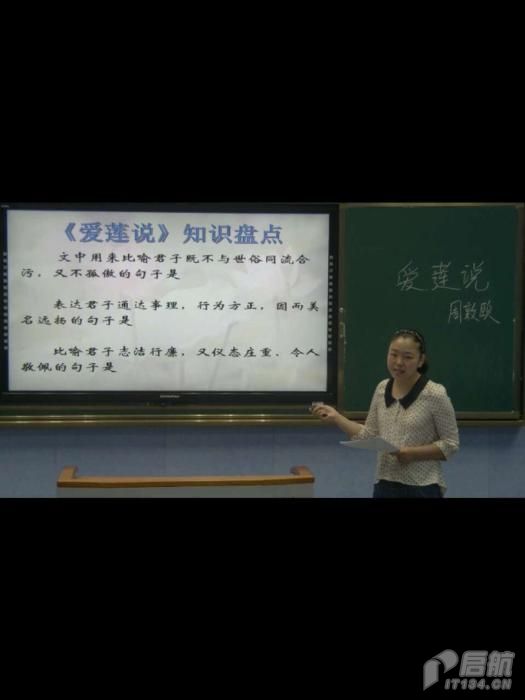 《爱莲说》知识盘点
文中用来比喻君子既不与世俗同流合
污，又不孤傲的句子是
表达君子通达事理，行为方正，因而美
名远扬的句子是
比喻君子志洁行廉，又仪态庄重、令人
敬佩的句子是
爱莲说
周敦
启航
IT134.CN